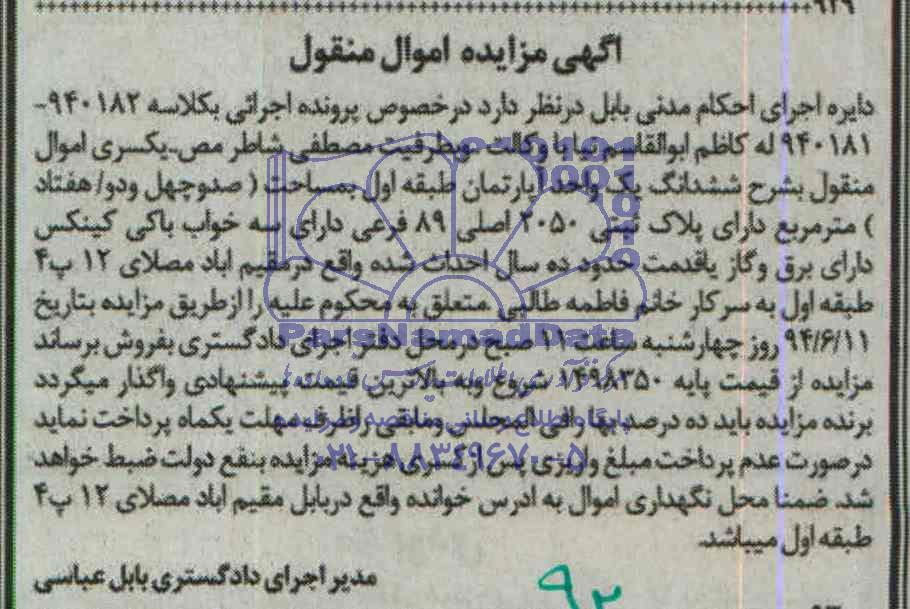 ۹۲۹
آگهی مزایده اموال منقول
دایره اجرای احکام مدنی بابل درنظر دارد درخصوص پرونده اجرائی بکلاسه ۹۴۰۱۸۲-
۹۴۰۱۸۱ له کاظم ابوالقاسم نیا با وکالت بظرفیت مصطفی شاطر مص-یکسری اموال
منقول بشرح ششدانگ یک واحد آپارتمان طبقه اول بمساحت ( صدوچهل ودو/هفتاد
) مترمربع دارای پلاک ثبتی ۲۰۵۰ اصلی ۸۹ فرعی دارای سه خواب باکی کینکس
دارای برق وگاز یاقدمت حدود ده سال احداث شده واقع درمقیم اباد مصلای ۱۲ پ۴
طبقه اول به سرکار خانم فاطمه طالبی متعلق به محکوم علیه را ازطریق مزایده بتاریخ
۹۴/۶/۱۱ روز چهارشنبه ساعت ۱۱ صبح درمحل دفتر اجرای دادگستری بفروش برساند
مزایده از قیمت پایه ۱۴۹۸۳۵۰ شروع وبه بالاترین قیمت پیشنهادی واگذار میگردد
برنده مزایده باید ده درصد بهاء فی المجلس ومابقی راظرف مهلت یکماه پرداخت نماید
درصورت عدم پرداخت مبلغ واریزی پس ازکسری هزینه مزایده بنفع دولت ضبط خواهد
شد. ضمنا محل نگهداری اموال به ادرس خوانده واقع دربابل مقیم اباد مصلای ۱۲ پ۴
طبقه اول میباشد.
مدیر اجرای دادگستری بابل عباسی
ParsNamadData
۰۲۱-۸۸۳۴۹۶۷۰-۵
۹۲